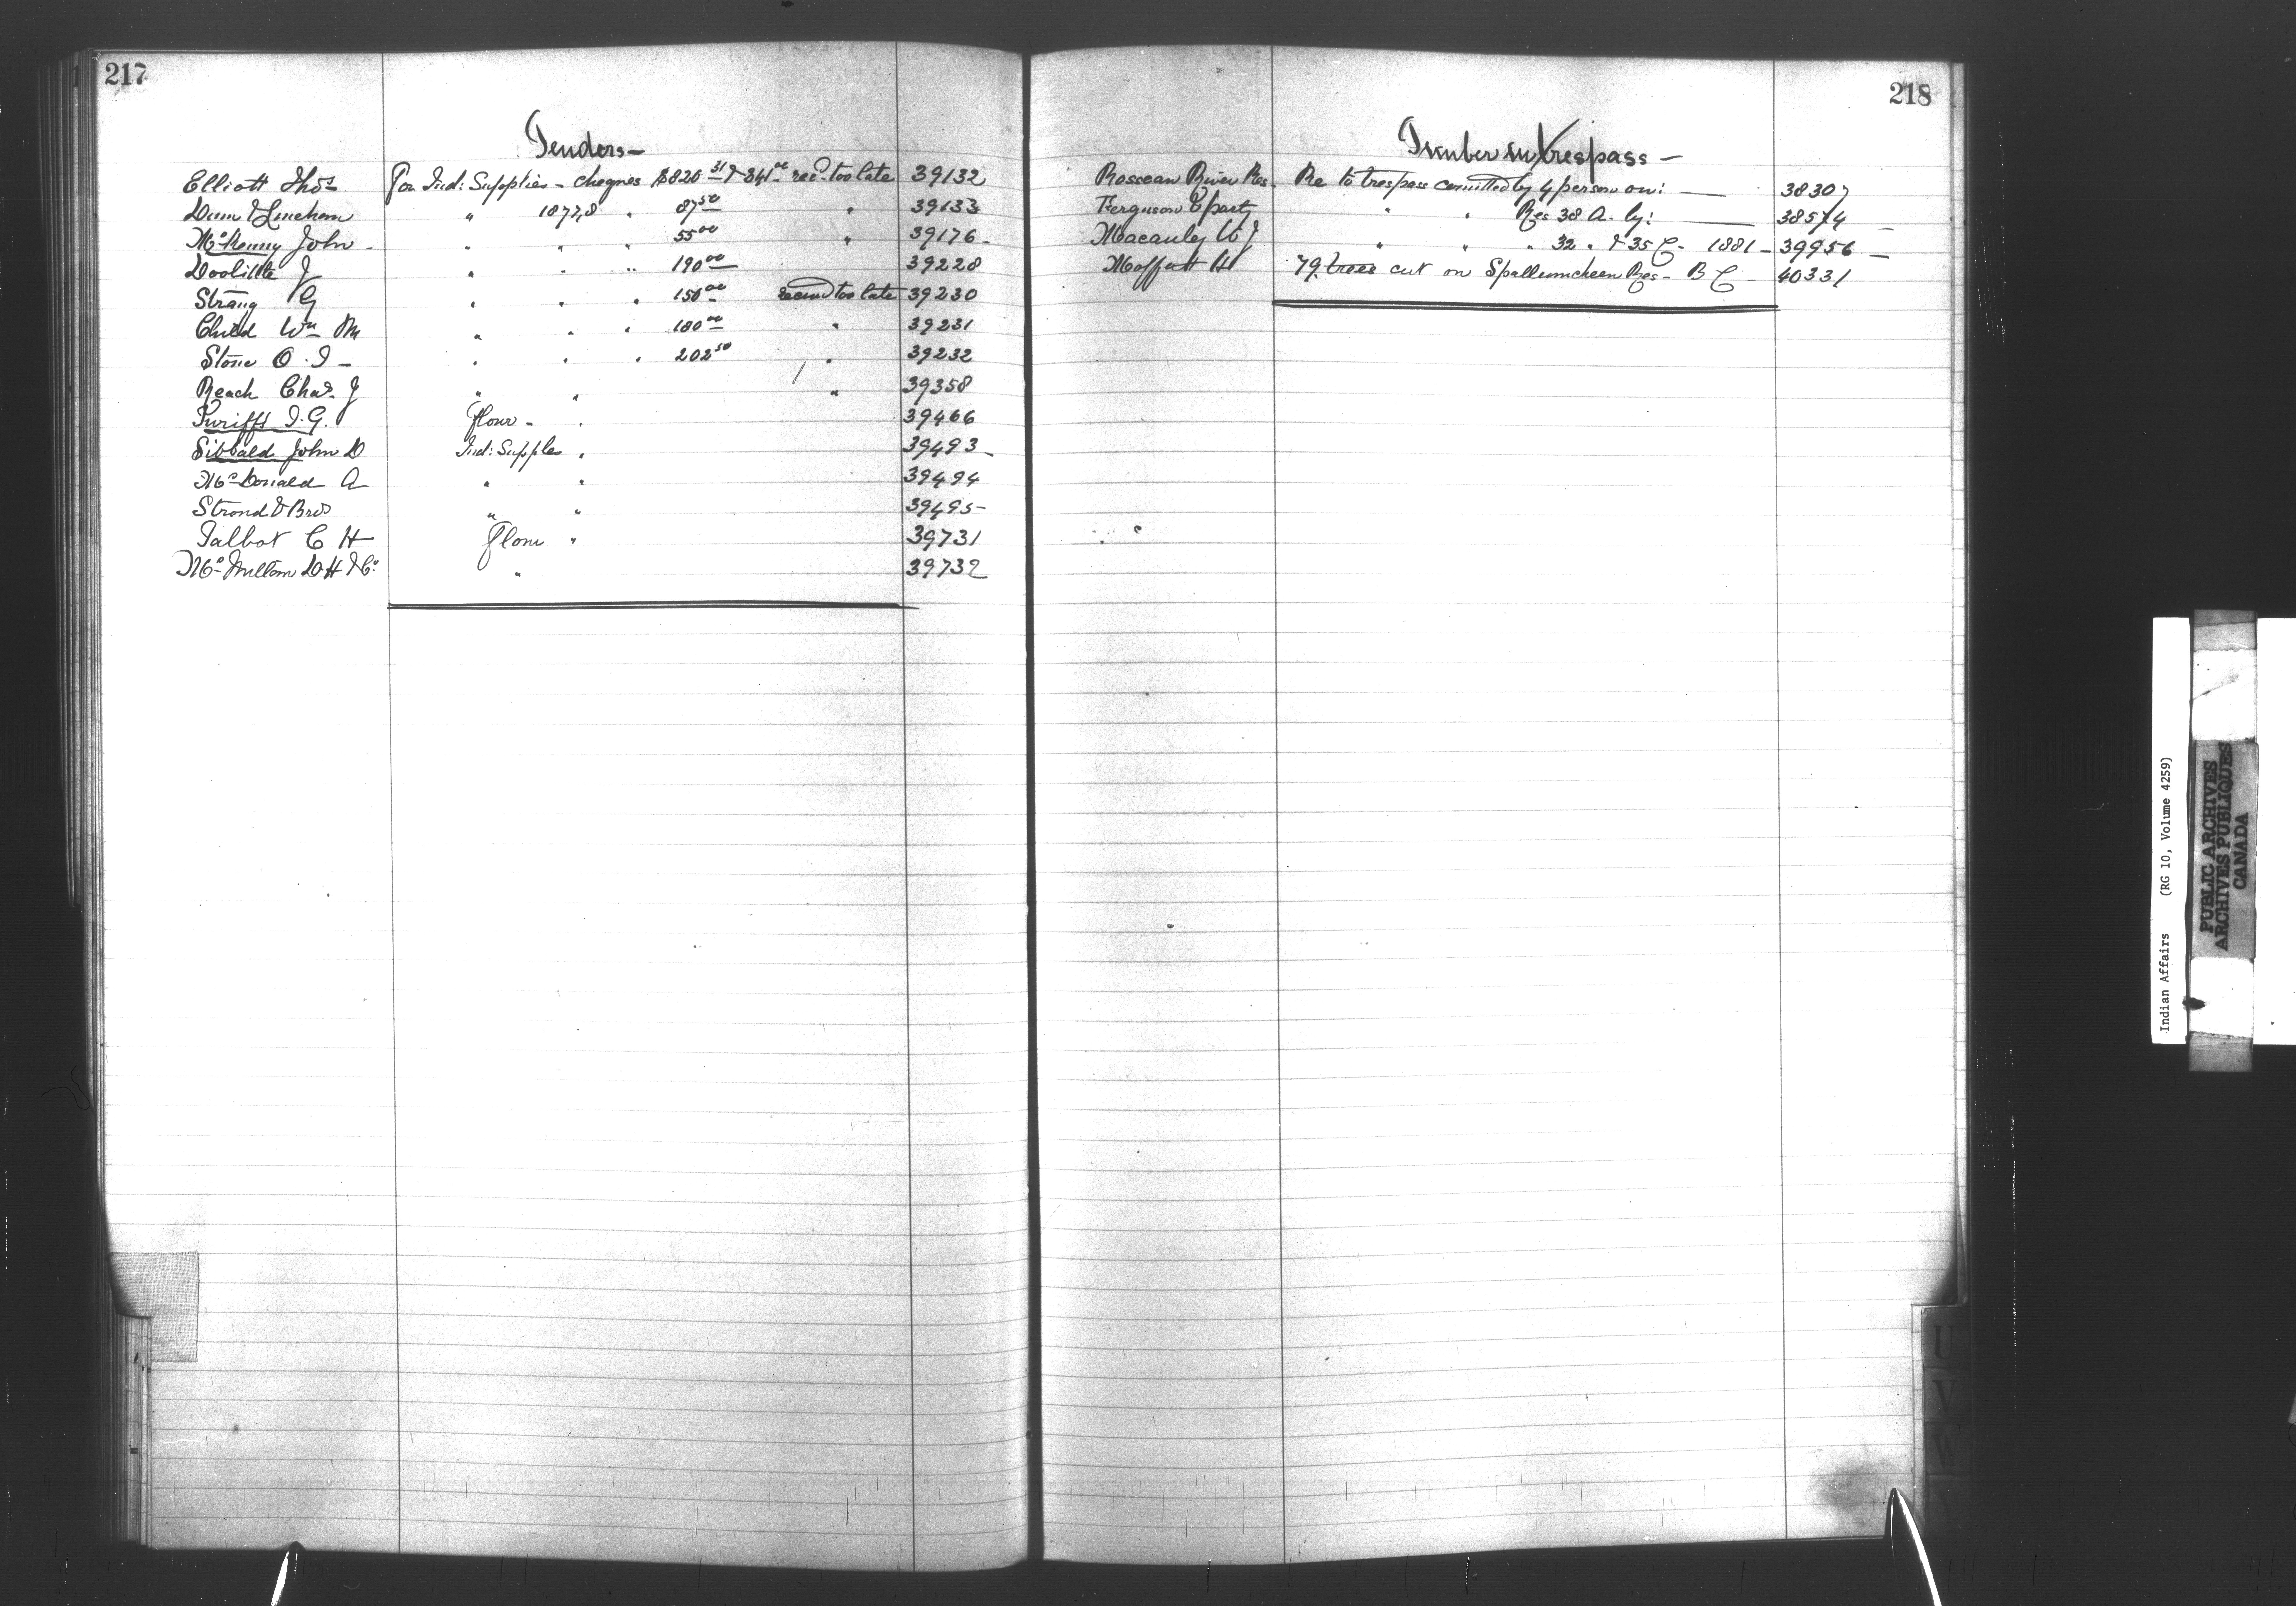 217
Tenders—
Elliott Thos For Ind: Supplies - cheques $820 31 & 341 00 rec'd too late 39132
Dunn & " 1877,8 " 87 50 " 39133
McKenny John - " " " 55 00 " 39176-
Doolittle J " " " 190 00 39228
Strang G " " " 150 00 recived too late 39230
Child Wm M " " " 180 00 " 39231
Stone O. I - " " " 202 50 " 39232
Reach Chas. J " " " 39358
Turiffs I. G. flour - " 39466
Sibbald John D Ind: Supples " 39493-
McDonald A " " 39494
Strond & Bros " " 39495-
Talbot C H Flour " 39731
McMillan D. H & Co " 39732
218
Timber in trespass—
Rosseau River Res. Re to trespass comitted by 4 person on: — 38307
Ferguson & party " " Res 38 A. by: — 38574 —
Macauley W J " " " 32 " & 35 C - 1881 - 39956 —
Moffatt H 79 trees cut on Spallumcheen Res - B C - 40331
U
V
W
Indian Affairs (RG 10, Volume 4259)
PUBLIC ARCHIVES
ARCHIVES PUBLIQUES
CANADA